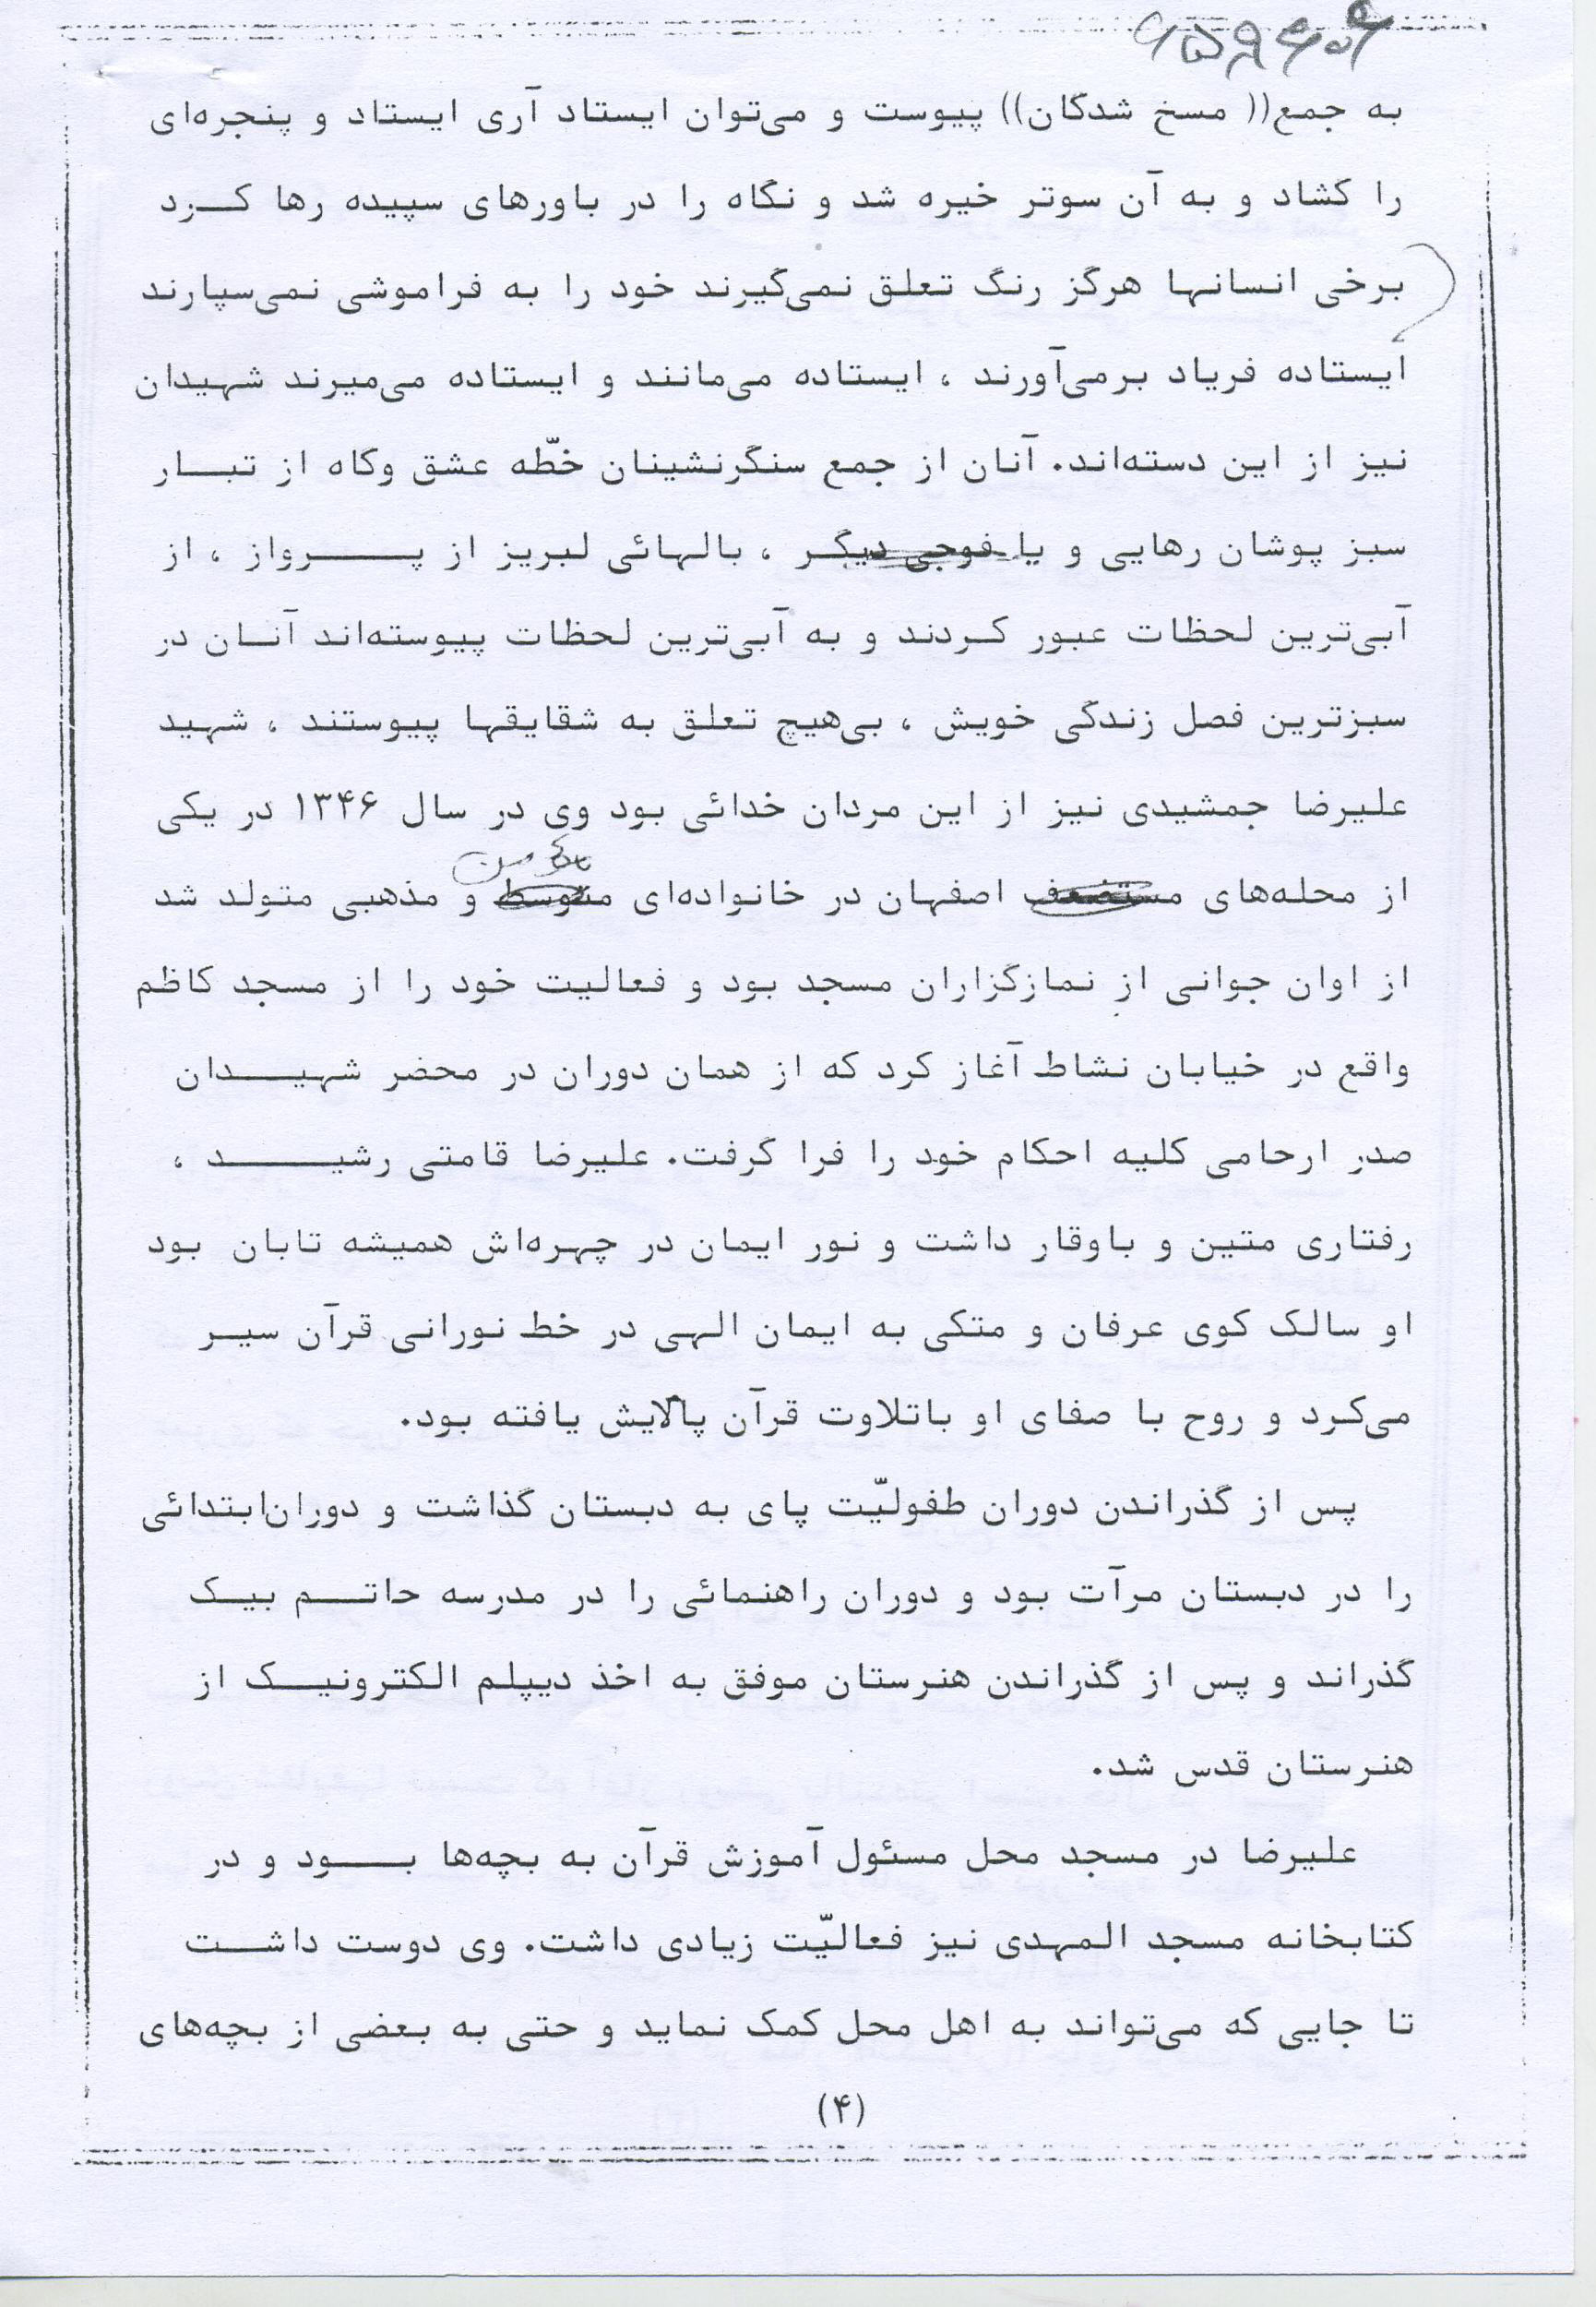 به جمع(( مسخ شدگان)) پیوست و می‌توان ایستاد آری ایستاد و پنجره‌ای
را کشاد و به آن سوتر خیره شد و نگاه را در باورهای سپیده رها کرد
برخی انسانها هرگز رنگ تعلق نمی‌گیرند خود را به فراموشی نمی‌سپارند
ایستاده فریاد برمی‌آورند ، ایستاده می‌مانند و ایستاده می‌میرند شهیدان
نیز از این دسته‌اند. آنان از جمع سنگرنشینان خطّه عشق وکاه از تبار
سبز پوشان رهایی و یا فوجی دیگر ، بالهائی لبریز از پرواز ، از
آبی‌ترین لحظات عبور کردند و به آبی‌ترین لحظات پیوسته‌اند آنان در
سبزترین فصل زندگی خویش ، بی‌هیچ تعلق به شقایقها پیوستند ، شهید
علیرضا جمشیدی نیز از این مردان خدائی بود وی در سال ۱۳۴۶ در یکی
از محله‌های مستضعف اصفهان در خانواده‌ای متوسط و مذهبی متولد شد
از اوان جوانی از نمازگزاران مسجد بود و فعالیت خود را از مسجد کاظم
واقع در خیابان نشاط آغاز کرد که از همان دوران در محضر شهیدان
صدر ارحامی کلیه احکام خود را فرا گرفت. علیرضا قامتی رشید ،
رفتاری متین و باوقار داشت و نور ایمان در چهره‌اش همیشه تابان بود
او سالک کوی عرفان و متکی به ایمان الهی در خط نورانی قرآن سیر
می‌کرد و روح با صفای او باتلاوت قرآن پالایش یافته بود.
پس از گذراندن دوران طفولیّت پای به دبستان گذاشت و دوران‌ابتدائی
را در دبستان مرآت بود و دوران راهنمائی را در مدرسه حاتم بیک
گذراند و پس از گذراندن هنرستان موفق به اخذ دیپلم الکترونیک از
هنرستان قدس شد.
علیرضا در مسجد محل مسئول آموزش قرآن به بچه‌ها بود و در
کتابخانه مسجد المهدی نیز فعالیّت زیادی داشت. وی دوست داشت
تا جایی که می‌تواند به اهل محل کمک نماید و حتی به بعضی از بچه‌های
(۴)